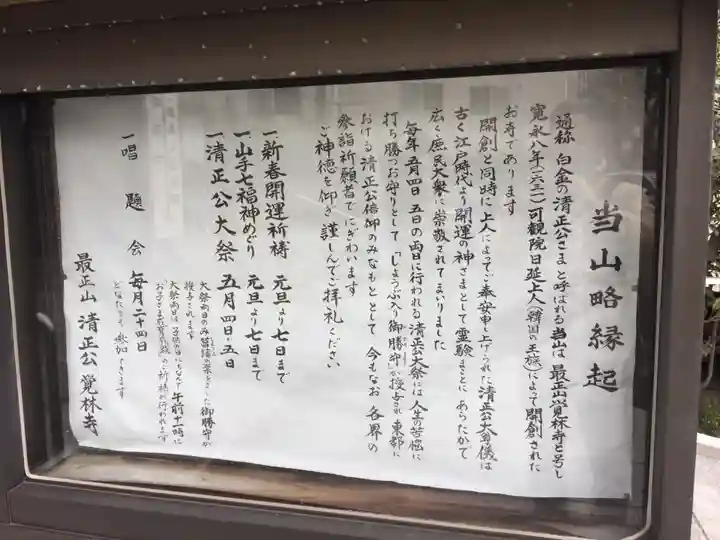 当山略縁起
通称 白金の清正公さまと呼ばれる当山は 最正山覚林寺と号し
寛永八年(一六三一)可観院日延上人(韓国の王族)によって開創された
お寺であります
開創と同時に上人によってご奉安申し上げられた清正公大尊儀は
古く江戸時代より開運の神さまとして霊験まことにあらたかで
広く庶民大衆に崇敬されてまいりました
毎年 五月四日 五日の両日に行われる清正公大祭には 人生の苦悩に
打ち勝つお守りとして「しょうぶ入り御勝守」が授与され 東都に
おける清正公信仰のみなもととして 今もなお 各界の
参詣祈願者でにぎわいます
ご神徳を仰ぎ 謹しんでご拝礼ください
一 新春開運祈祷 元旦より七日まで
一 山手七福神めぐり 元旦より七日まで
一 清正公大祭 五月四日・五日
大祭両日のみ菖蒲の葉を入れた御勝守が
授与されます
大祭両日は「子供の日」にちなんで 午前十一時に
お子さま のご祈祷が行われます
一 唱題会 毎月二十四日
どなたでも参加できます
最正山 清正公 覚林寺